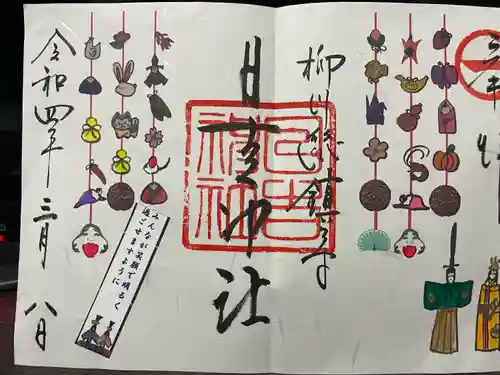 柳川総鎮守
日吉神社
令和四年三月八日
みんなが笑顔で明るく
過ごせますように